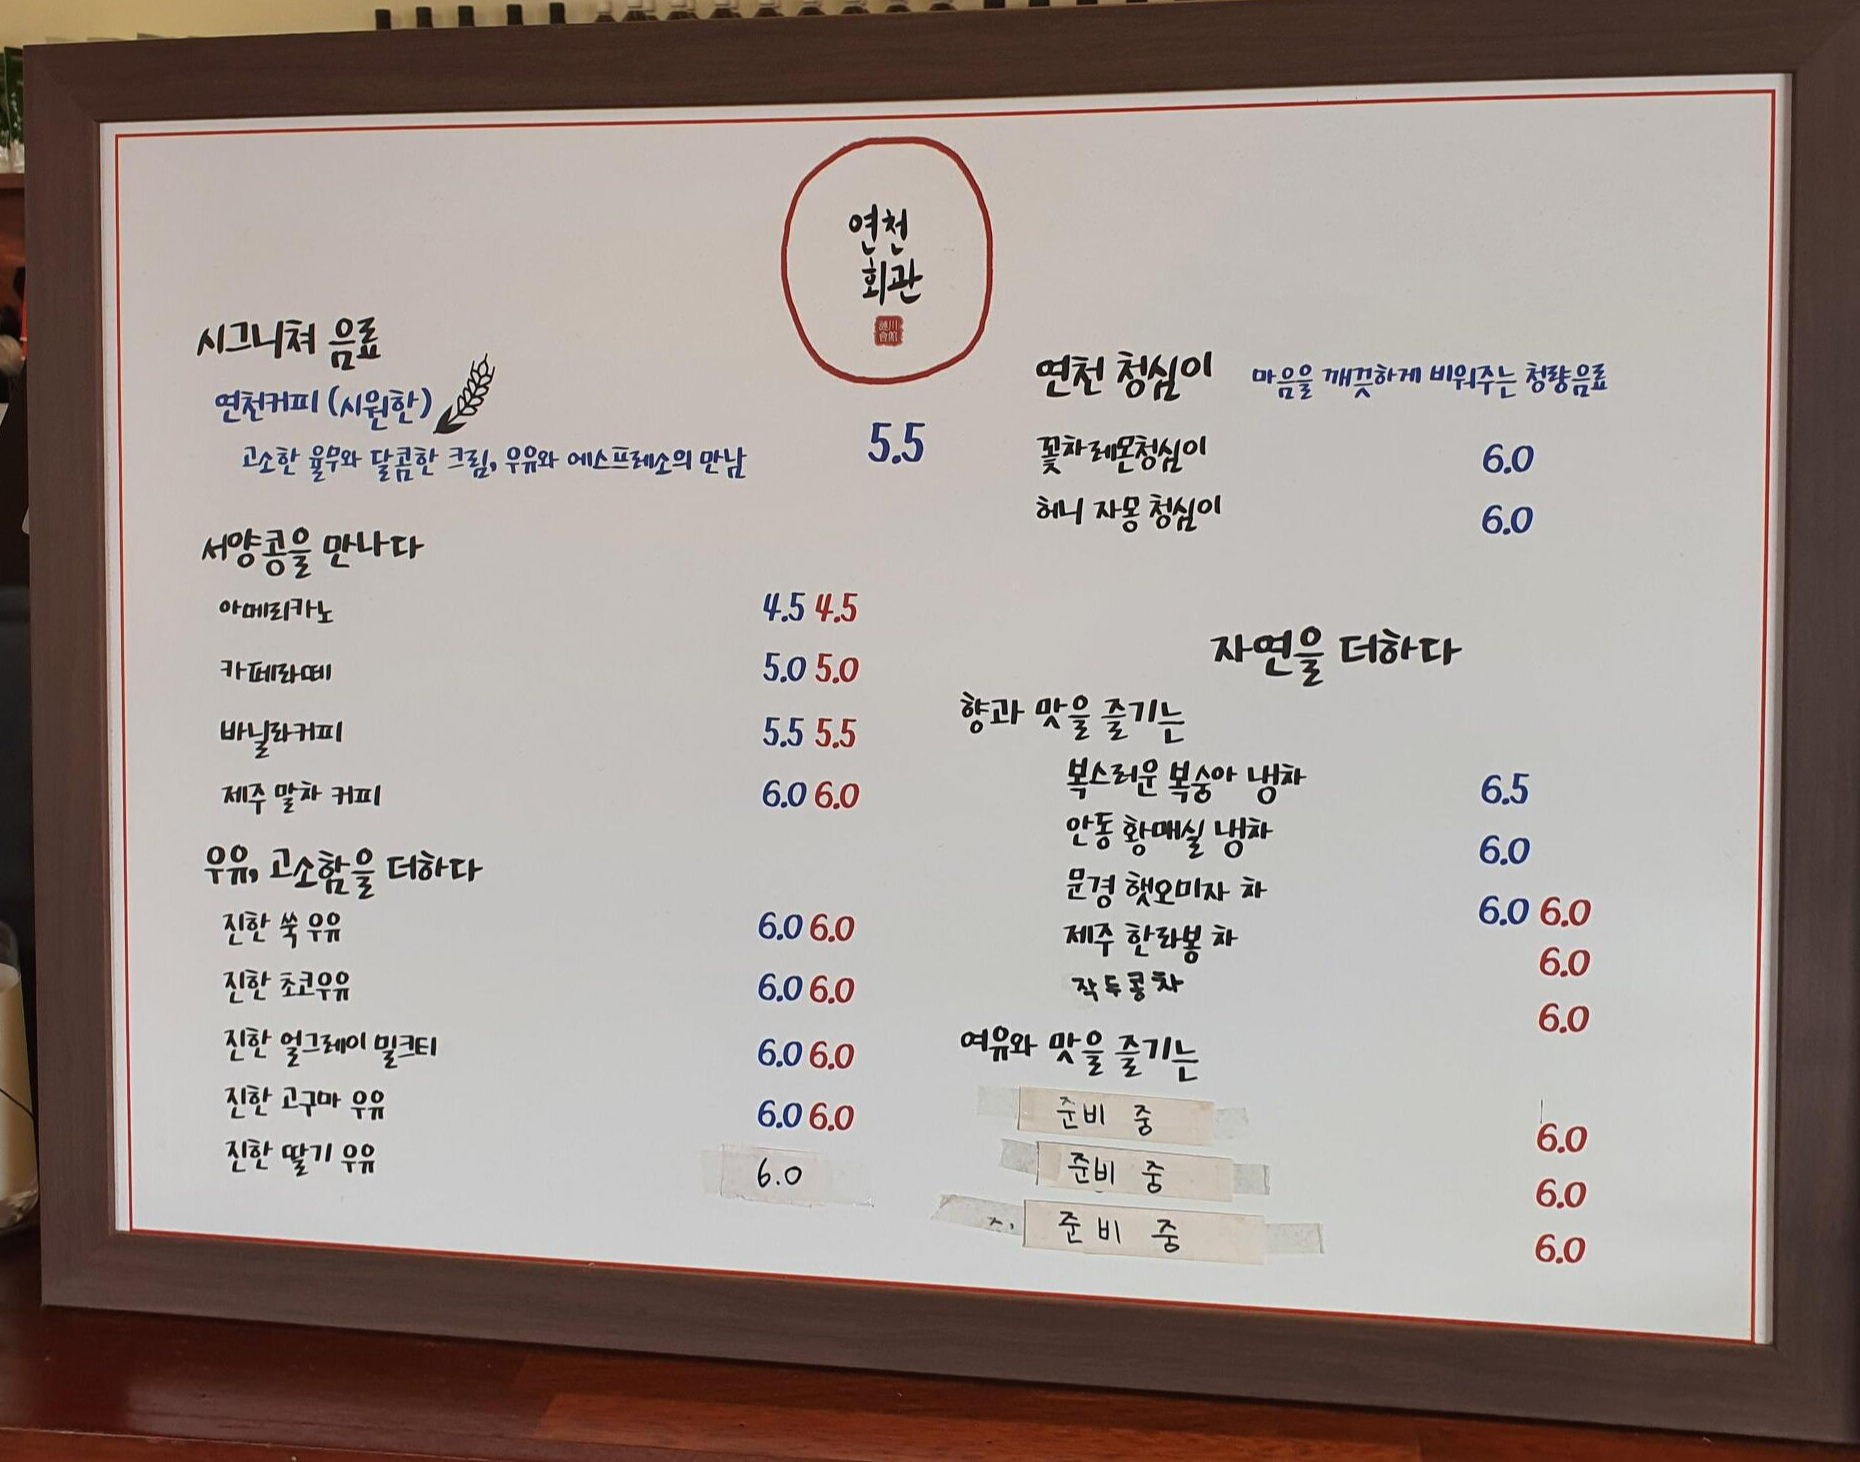 연천
회관
시그니쳐 음료
연천커피 (시원한)
고소한 율무와 달콤한 크림, 우유와 에스프레소의 만남 5.5
서양콩을 만나다
아메리카노 4.5 4.5
카페라떼 5.0 5.0
바닐라커피 5.5 5.5
제주 말차 커피 6.0 6.0
우유, 고소함을 더하다
진한 쑥 우유 6.0 6.0
진한 초코우유 6.0 6.0
진한 얼그레이 밀크티 6.0 6.0
진한 고구마 우유 6.0 6.0
진한 딸기 우유 6.0
연천 청심이 마음을 깨끗하게 비워주는 청량음료
꽃차레몬청심이 6.0
허니 자몽 청심이 6.0
자연을 더하다
향과 맛을 즐기는
복스러운 복숭아 냉차 6.5
안동 황매실 냉차 6.0
문경 햇오미자 차 6.0 6.0
제주 한라봉 차 6.0
작두콩차 6.0
여유와 맛을 즐기는
준비 중 6.0
준비 중 6.0
준비 중 6.0